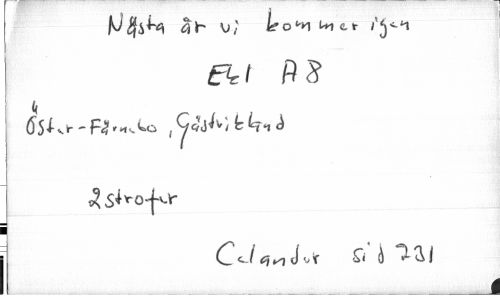 Nästa år vi kommer igen
Ek1 A8
Öster-Färnebo, Gästrikland
2 strofer
Celander sid 231